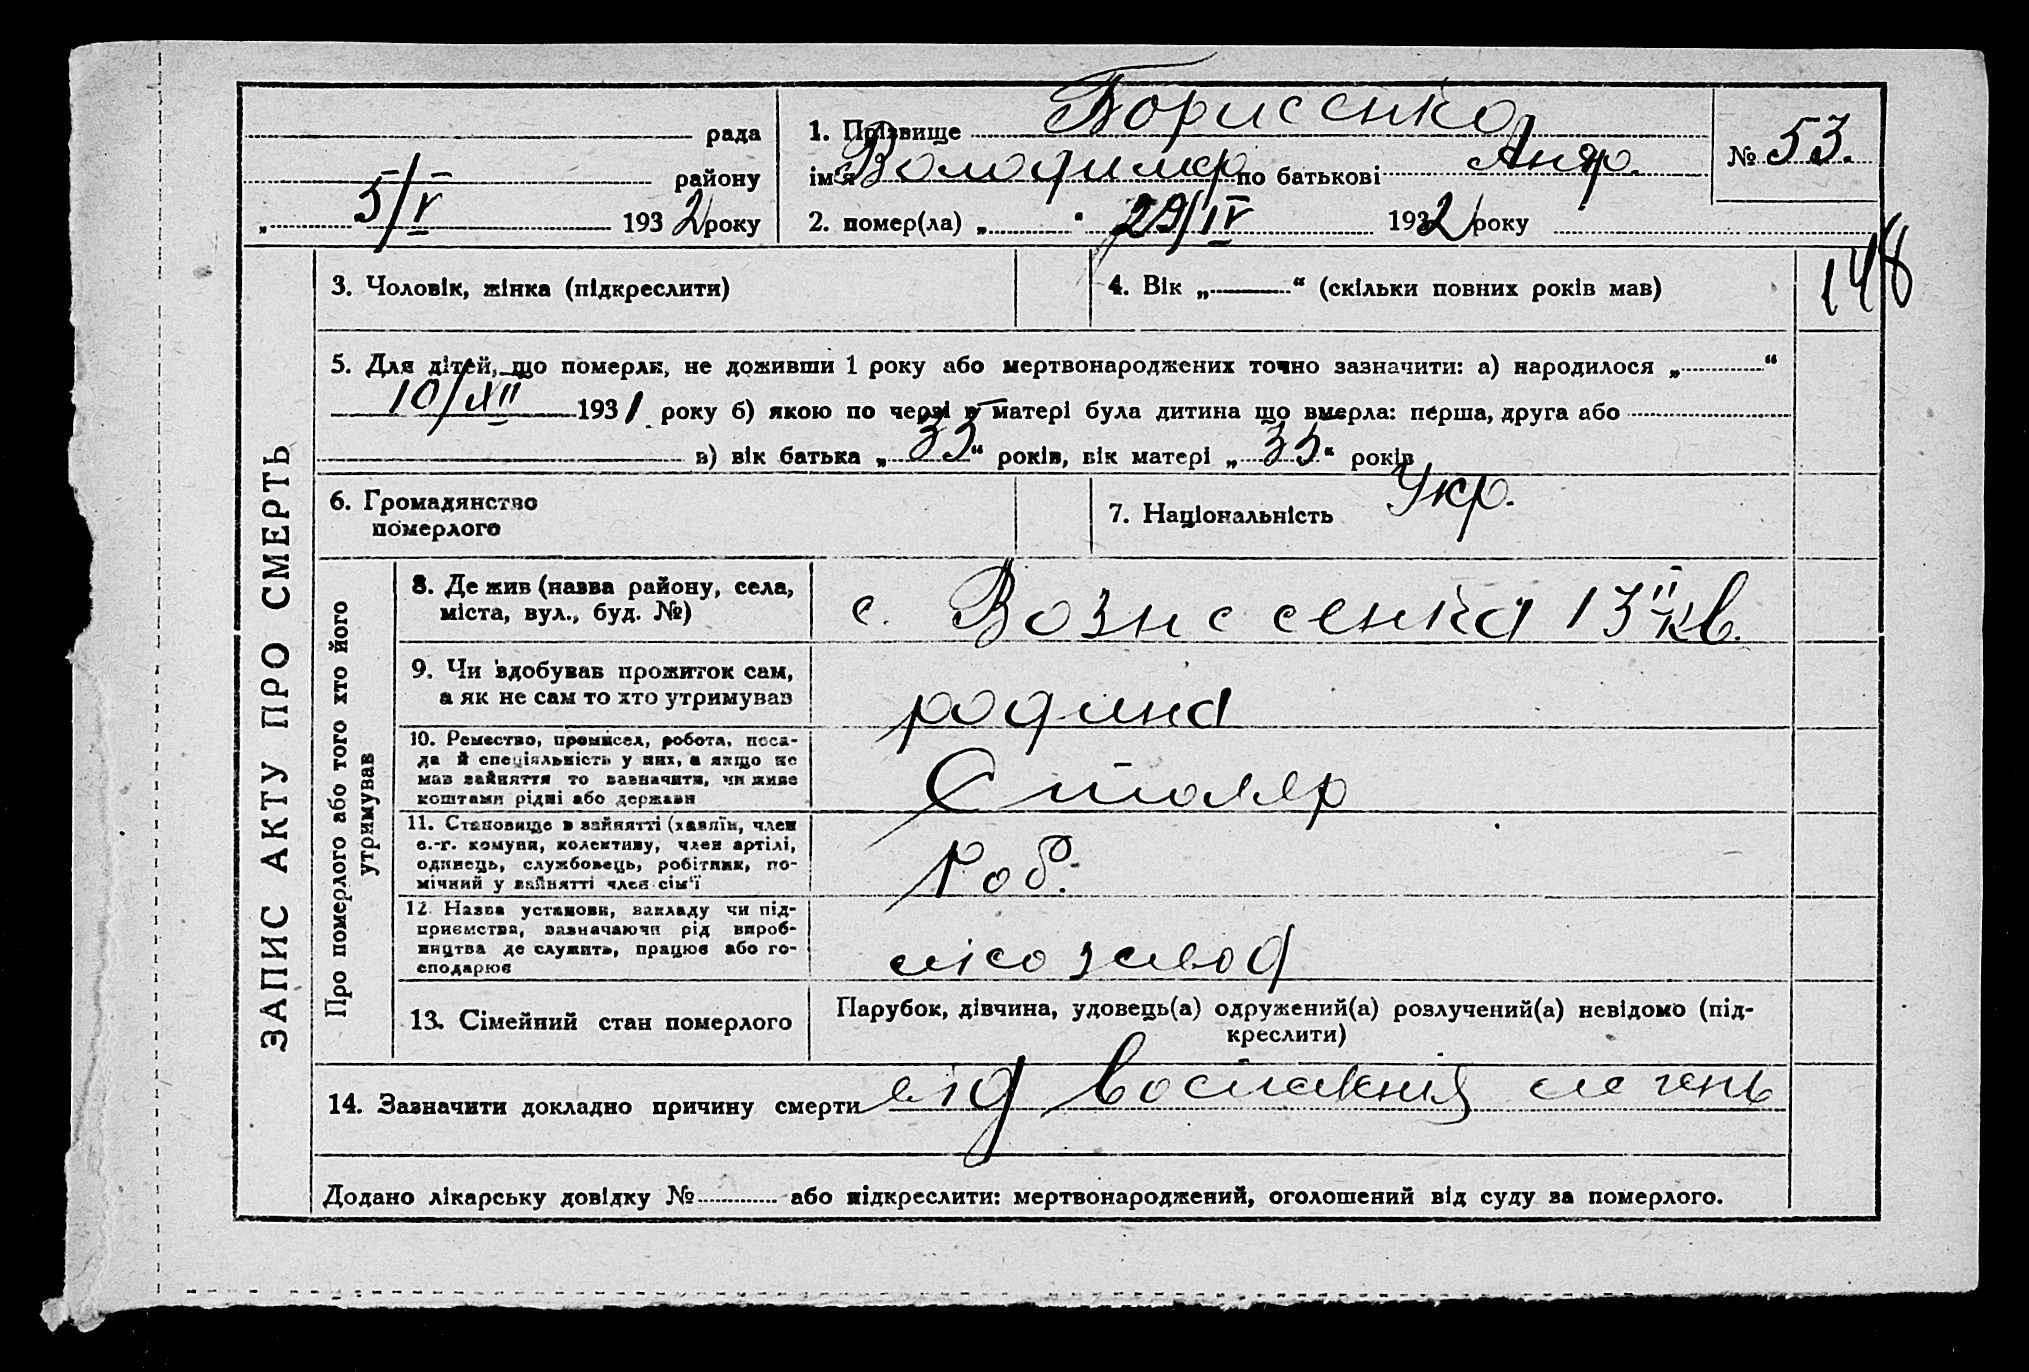 рада
району
5/V 1932 року
1. Прізвище Борисенко
ім'я Володимир по батькові Андр.
2. помер(ла) „ " 29/IV 1932 року
№ 53.
148
ЗАПИС АКТУ ПРО СМЕРТЬ
3. Чоловік, жінка (підкреслити)
4. Вік „ " (скільки повних років мав)
5. Для дітей, що померли, не доживши 1 року або мертвонароджених точно зазначити: а) народилося „ "
10/XII 1931 року б) якою по черзі в матері була дитина що вмерла: перша, друга або
в) вік батька „ 35 " років, вік матері „ 35 " років
6. Громадянство
померлого
7. Національність Укр.
Про померлого або того хто його
утримував
8. Де жив (назва району, села,
міста, вул., буд. №)
с. Вознесенка 13й кв.
9. Чи здобував прожиток сам,
а як не сам то хто утримував
родина
10. Ремество, промисел, робота, поса-
да й спеціяльність у них, а якщо не
мав зайняття то зазначити, чи живе
коштами рідні або держави
Столяр
11. Становище в зайнятті (хазяїн, член
с.-г. комуни, колективу, член артілі,
одинець, службовець, робітник, по-
мічний у зайнятті член сім'ї
Роб.
12. Назва установи, закладу чи під-
приємства, зазначаючи рід вироб-
ництва де служить, працює або го-
сподарює
лісозавод
13. Сімейний стан померлого
Парубок, дівчина, удовець(а) одружений(а) розлучений(а) невідомо (під-
креслити)
14. Зазначити докладно причину смерти від воспаления легень
Додано лікарську довідку № або підкреслити: мертвонароджений, оголошений від суду за померлого.